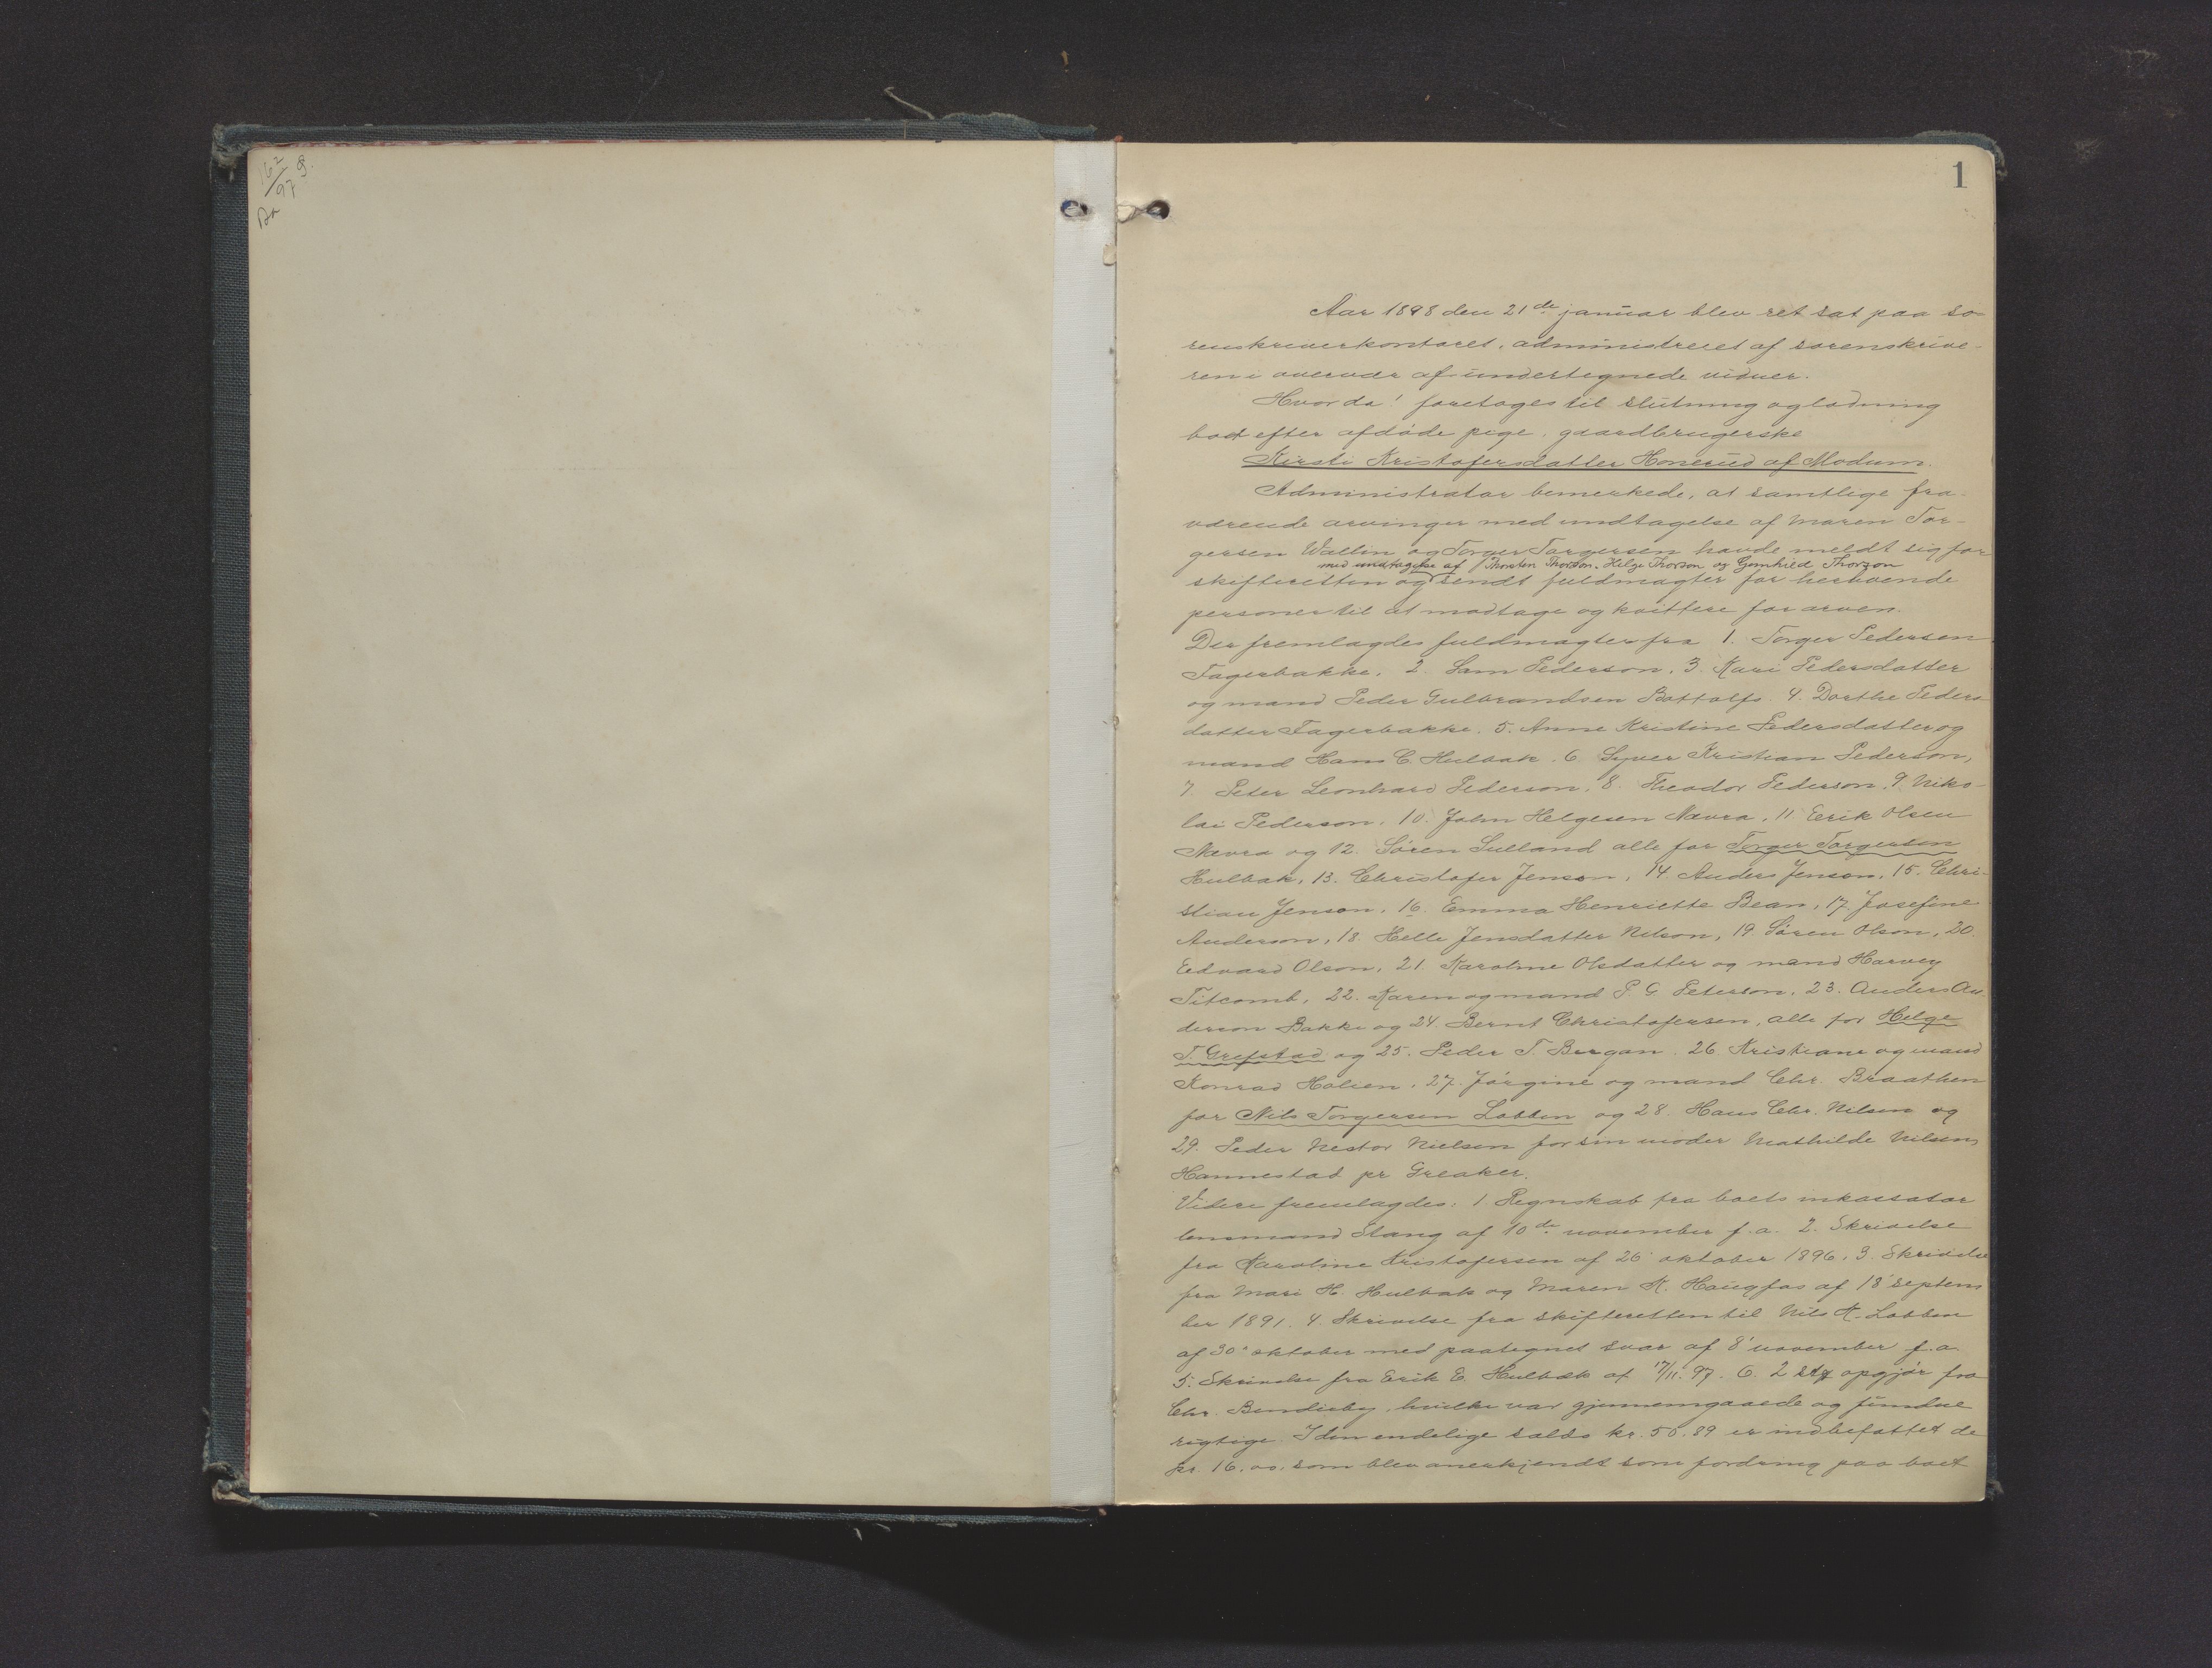 162/97 9.
1
Aar 1898 den 21de januar blev ret sat paa so-
renskriverkontoret, administreret af sorenskrive-
ren i overvær af undertegnede vidner.
Hvorda! foretoges til slutning og lodning
boet efter afdøde pige, gaardbrugerske
Kirsti Kristofersdatter Honerud af Modum.
Administrator bemerkede, at samtlige fra-
værende arvinger med undtagelse af Maren Tor-
gersen Wallin og Torger Torgersen havde meldt sig for
med undtagelse af Thorsten Thorson, Helge Thorson og Gunhild Thorson
skifteretten og sendt fuldmagter for herboende
personer til at modtage og kvittere for arven.
Der fremlagdes fuldmagter fra 1. Torger Pedersen
Fagerbakke, 2. Sam Pederson, 3. Kari Pedersdatter
og mand Peder Gulbrandsen Bottolfs 4. Dorthe Peders-
datter Fagerbakke, 5. Anne Kristine Pedersdatter og
mand Hans C. Hulbak, 6. Syver Kristian Pederson,
7. Peter Leonhard Pederson, 8. Theodor Pederson, 9. Niko-
lai Pederson, 10. John Helgesen Nævra, 11. Erik Olsen
Nævra og 12. Sören Sulland alle for Torger Torgersen
Hulbak, 13. Christofer Jenson, 14. Anders Jenson, 15. Chri-
stian Jenson, 16. Emma Henriette Bean, 17. Josefine
Anderson, 18. Helle Jensdatter Nelson, 19. Sören Olson, 20.
Edvard Olson, 21. Karoline Olsdatter og mand Harvey
Titcomb, 22. Karen og mand P. G. Peterson, 23. Anders An-
derson Bakke og 24. Bernt Christofersen, alle for Helge
T. Grefstad og 25. Peder T. Bergan, 26. Kristiane og mand
Konrad Holien, 27. Jörgine og mand Chr. Braathen
for Nils Torgersen Lobben og 28. Hans Chr. Nilsen og
29. Peder Nestor Nielsen for sin moder Mathilde Nilsen,
Hannestad pr Greaker.
Videre fremlagdes: 1. Regnskab fra boets inkassator
lensmand Stang af 10de november f.a. 2. Skrivelse
fra Karoline Kristofersen af 26 oktober 1896, 3. Skrivelse
fra Mari H. Hulbak og Maren K. Haugfos af 18 septem
ber 1891. 4. Skrivelse fra skifteretten til Nils K. Lobben
af 30 oktober med paategnet svar af 8 november f.a.
5. Skrivelse fra Erik E. Hulbæk af 17/11.97. 6. 2 stk opgjör fra
Chr. Bendixby, hvilke var gjennemgaaede og fundne
rigtige. I den endelige saldo kr. 50.89 er indbefattet de
kr. 16,00, som blev anerkjendt som fordring paa boet